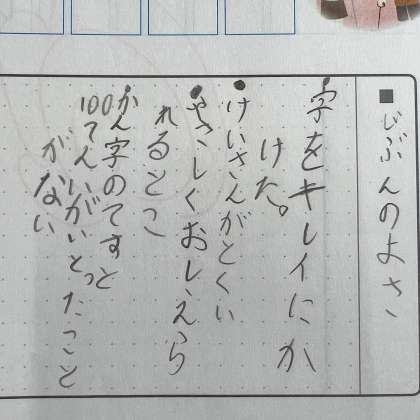 ■じぶんのよさ
・字をキレイにか
けた。
・けいさんがとくい
・やさしくおしえら
れるとこ
・かん字のてすと
100てんいがいとったこと
がない